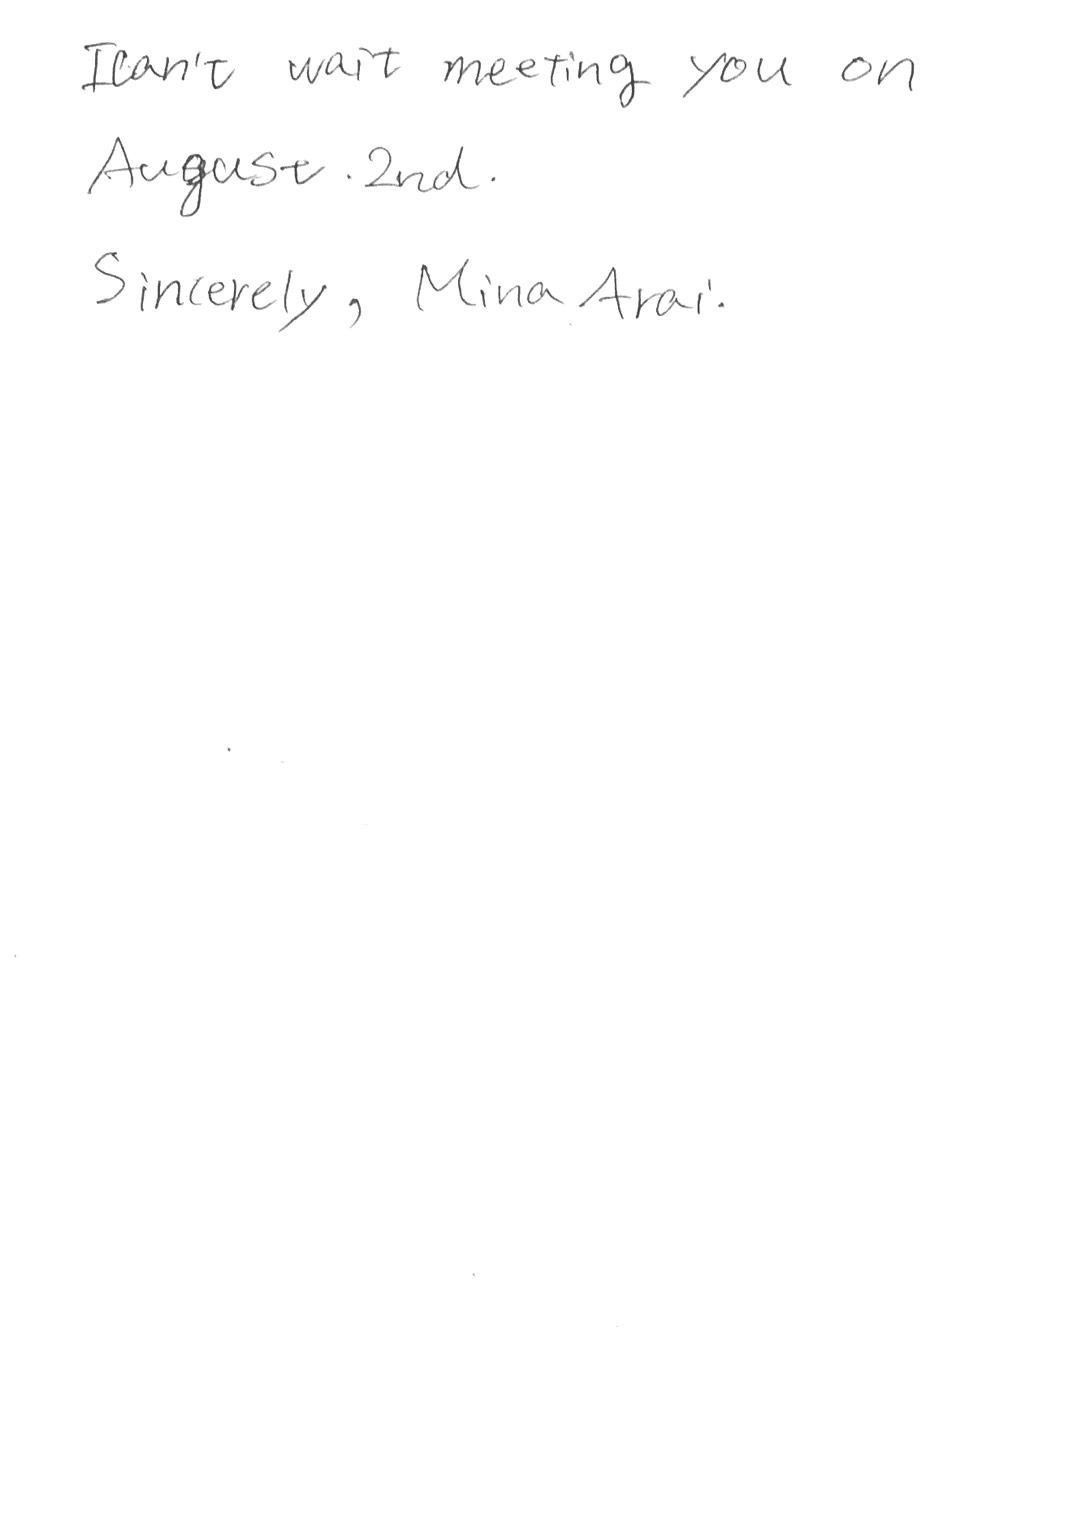 I can't wait meeting you on
August. 2nd.
Sincerely, Mina Arai.